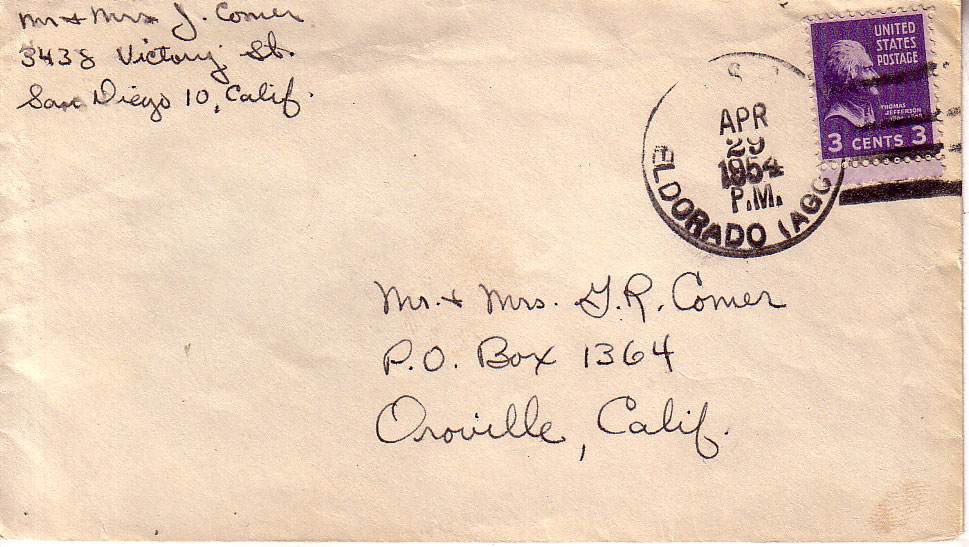 Mr + Mrs J. Comer
3438 Victory St.
San Diego 10, Calif.
UNITED
STATES
POSTAGE
THOMAS
JEFFERSON
3 CENTS 3
APR
29
1954
P.M.
ELDORADO (AGC
Mr. + Mrs. G.R. Comer
P.O. Box 1364
Oroville, Calif.